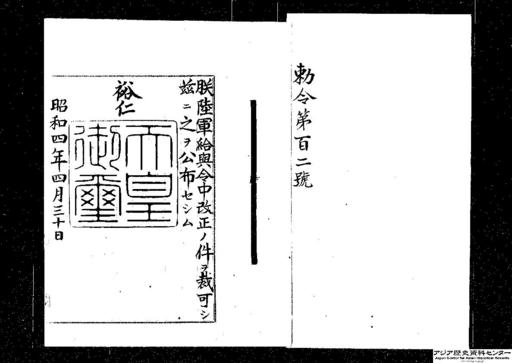 勅令第百二號
朕陸軍給與令中改正ノ件ヲ裁可シ
茲ニ之ヲ公布セシム
裕仁
天皇
御璽
昭和四年四月三十日
アジア歴史資料センター
Japan Center for Asian Historical Records